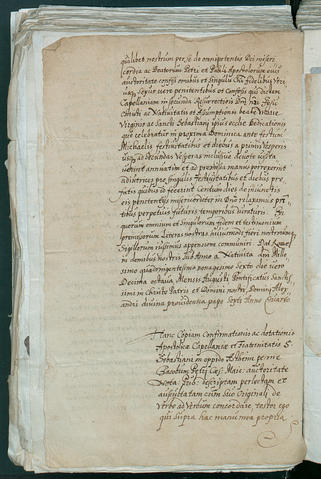 quilibet nostrum per se de omnipotentis Dei miseri
cordia ac Beatorum Petri et Pauli Apostolorum eius
auctoritate confisi omnibus et singulis Christi fidelibus utri
usque sexus vere penitentibus et confessis qui dictam
Capellaniam in secunda Resurrectionis Domini nostri Jesu
Christi ac Nativitatis et Assumptionis beate Marie
Virginis ac Sancti Sebastiani ipsius ecclesie Dedicationis
que celebratur in proxima Dominica ante festum
Michaelis festivitatibus et diebus a primis Vesperis
usque ad secundas Vesperas inclusive devote visita
verint annuatim et ad premissa manus porrexerint
adiutrices pro singulis festivitatibus et diebus pre
fatis quibus id fecerint Centum dies de iniunctis
eis penitentiis misericorditer in Domino relaxamus pre
sentibus perpetuis futuris temporibus duraturis. In
quorum omnium et singulorum fidem et testimonium
premissorum Literas nostras huiusmodi fieri nostrorumque
Sigillorum iussimus appensione communiri. Dat. Romae
in domibus nostris sub Anno a Nativitate Domini Mille
simo quadringentesimo nonagesimo sexto die vero
Decima octava Mensis Augusti Pontificatus Sanctis
simi in Christo Patris et Domini nostri Domini Alex
andri divina providentia pape Sexti Anno Quarto
Hanc Copiam Confirmationis ac dotationis
Apostolice Capellaniae et Fraternitatis S.
Sebastiani in oppido
Jacobum Caes: Maie: auctoritate
Nota: Pub: descriptam perlectam et
auscultatam cum suo Originali de
verbo ad verbum concordare testor ego
qui supra hac manu mea propria